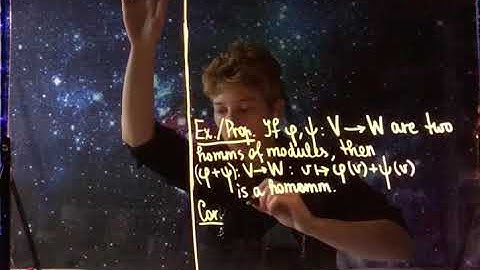 Ex./Prop. If φ, ψ: V → W are two
homms of modules, then
(φ+ψ): V → W : v ↦ φ(v) + ψ(v)
is a homomm.
Cor.